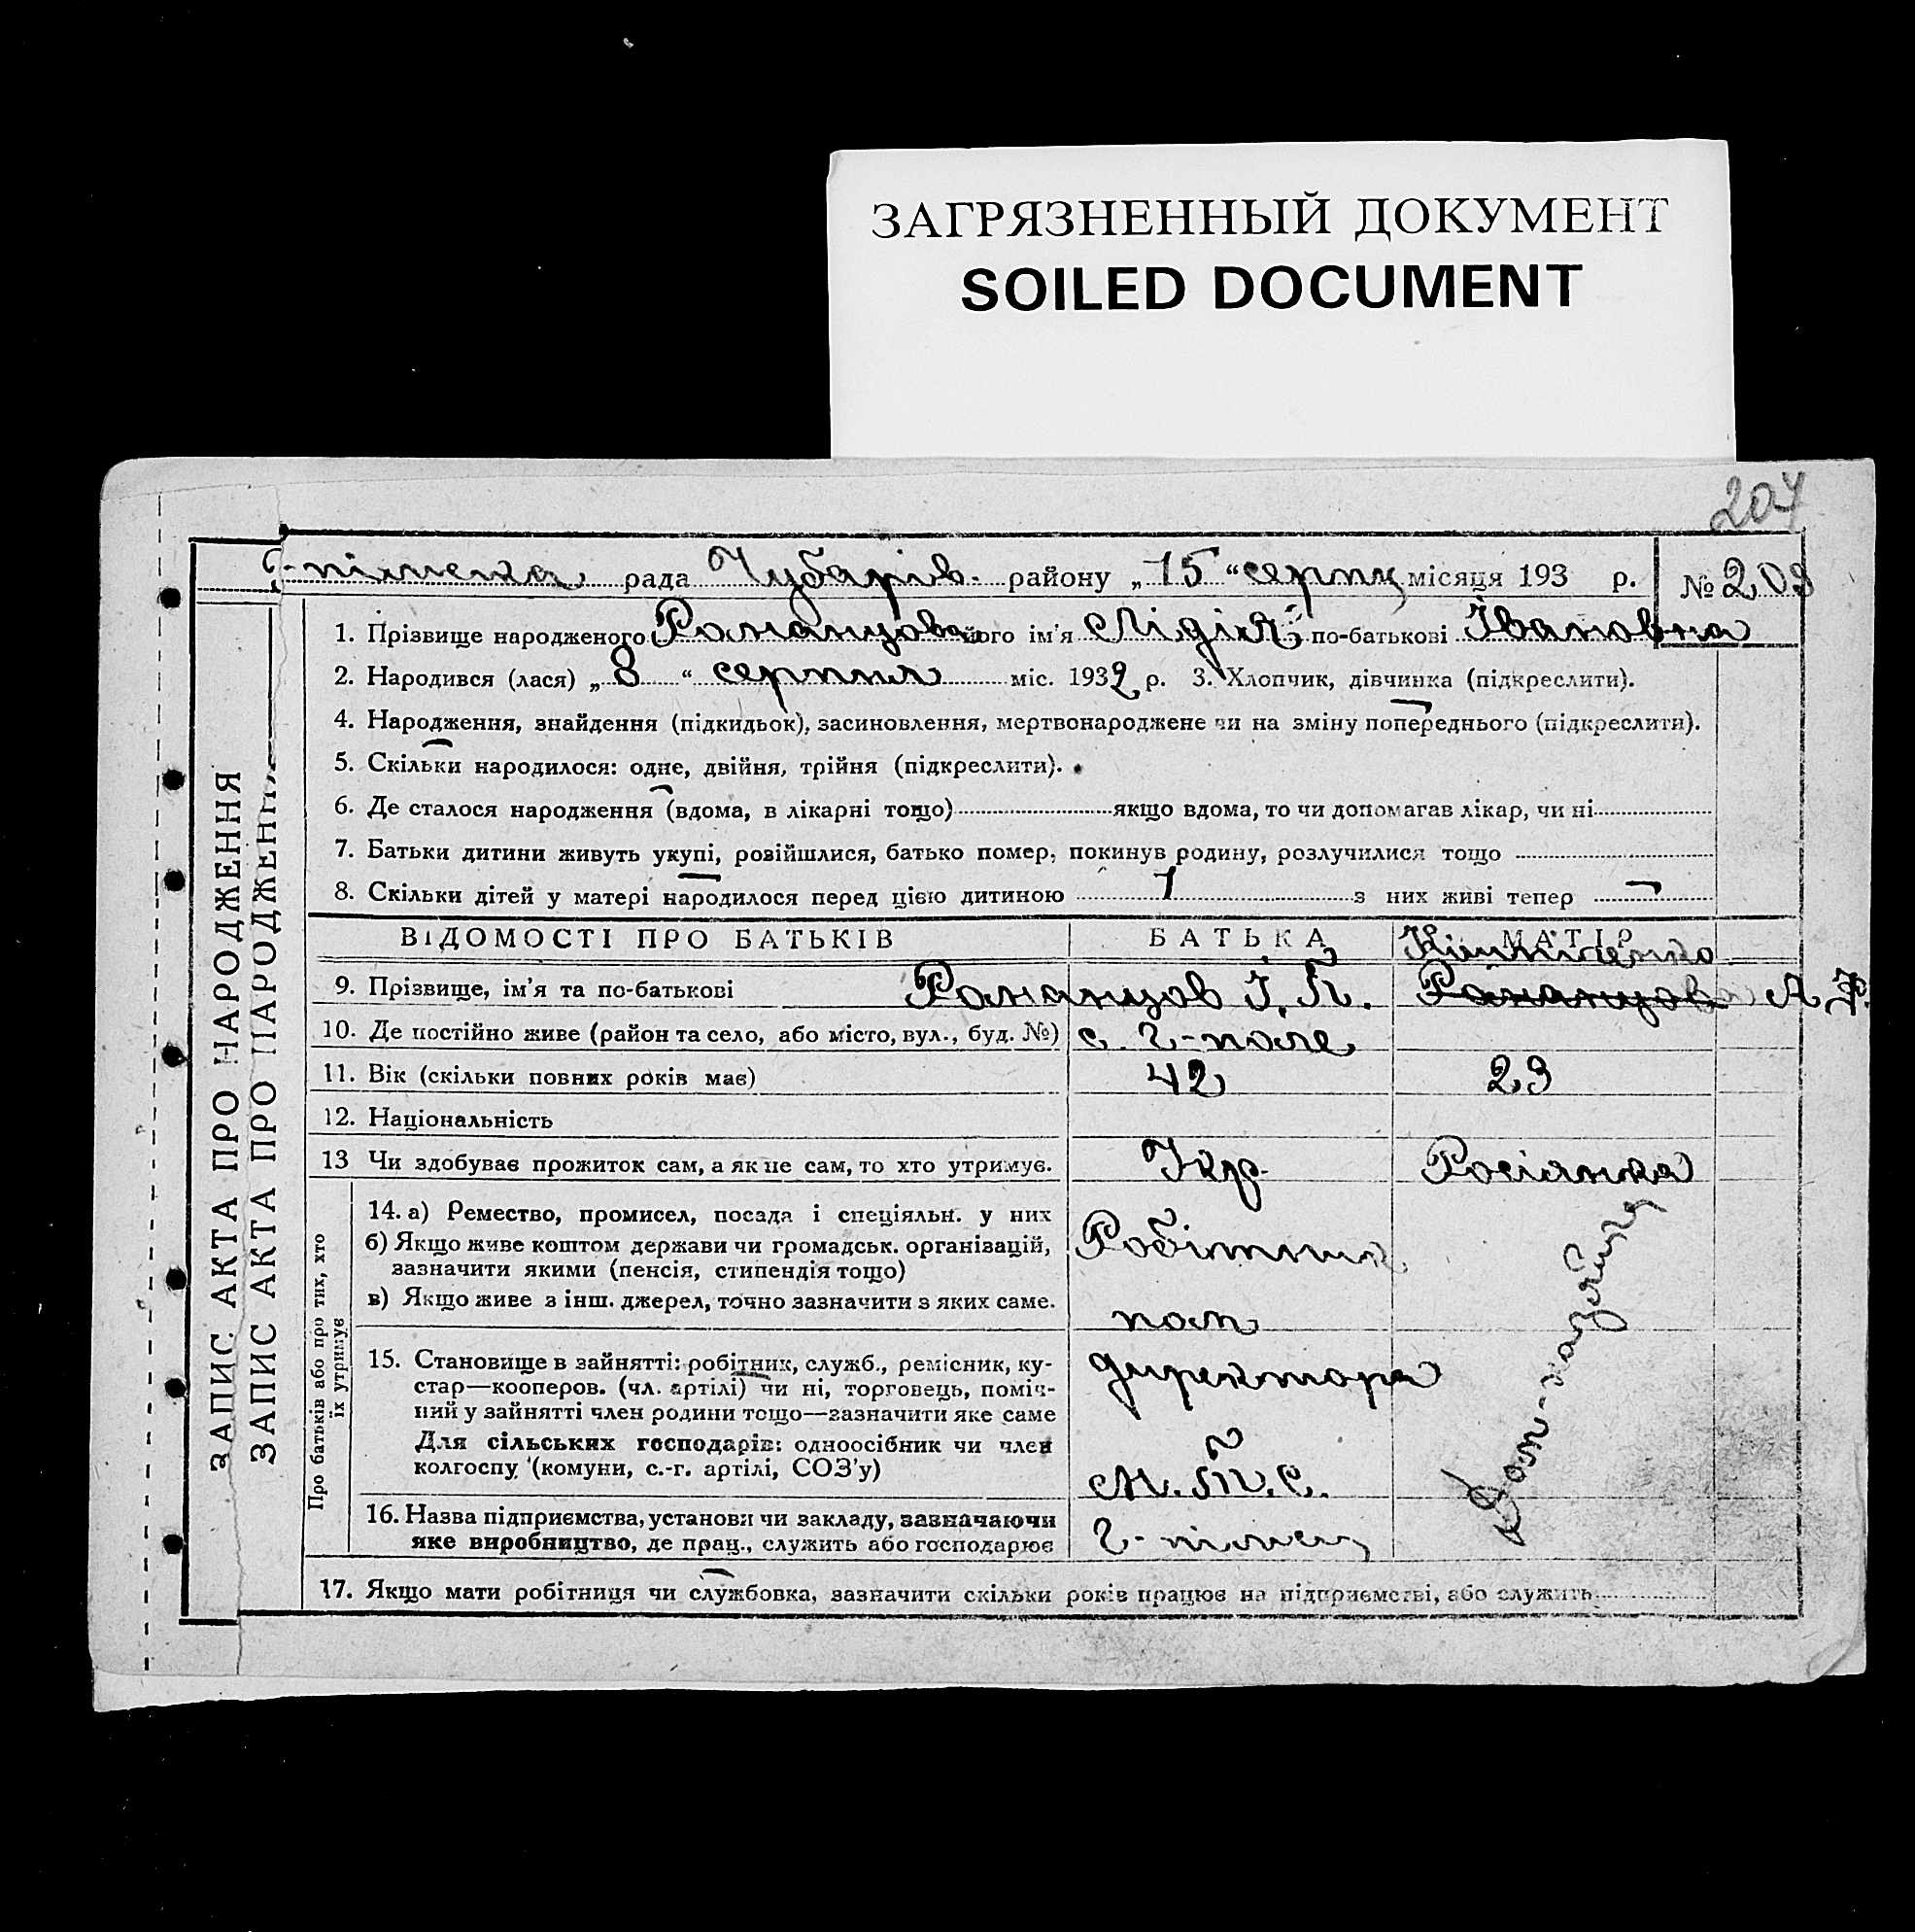 ЗАГРЯЗНЕННЫЙ ДОКУМЕНТ
SOILED DOCUMENT
207
Г-пільська рада Чубарів. району „15“ серпня місяця 193 р. № 203
1. Прізвище народженого Романцова його ім'я Лідія по-батькові Івановна
2. Народився (лася) „8“ серпня міс. 1932 р. 3. Хлопчик, дівчинка (підкреслити).
4. Народження, знайдення (підкидьок), засиновлення, мертвонароджене чи на зміну попереднього (підкреслити).
5. Скільки народилося: одне, двійня, трійня (підкреслити).
6. Де сталося народження (вдома, в лікарні тощо) якщо вдома, то чи допомагав лікар, чи ні
7. Батьки дитини живуть укупі, розійшлися, батько помер, покинув родину, розлучилися тощо
8. Скільки дітей у матері народилося перед цією дитиною 1 з них живі тепер
ВІДОМОСТІ ПРО БАТЬКІВ БАТЬКА МАТІР
9. Прізвище, ім'я та по-батькові Романцов І. П. Романцова А. Ф.
10. Де постійно живе (район та село, або місто, вул., буд. №) с. Г-поле
11. Вік (скільки повних років має) 42 23
12. Національність
13 Чи здобуває прожиток сам, а як не сам, то хто утримує. Укр. Росіянка
Про батьків або про тих, хто
їх утримує
14. а) Ремество, промисел, посада і спеціяльн. у них
б) Якщо живе коштом держави чи громадськ. організацій,
зазначити якими (пенсія, стипендія тощо)
в) Якщо живе з інш. джерел, точно зазначити з яких саме.
Робітник
пом
15. Становище в зайнятті: робітник, служб., ремісник, ку-
стар—кооперов. (чл. артілі) чи ні, торговець, поміч-
ний у зайнятті член родини тощо—зазначити яке саме
Для сільських господарів: одноосібник чи член
колгоспу (комуни, с.-г. артілі, СОЗ'у)
директора
М.П.С.
Дом-хазяйка
16. Назва підприємства, установи чи закладу, зазначаючи
яке виробництво, де прац., служить або господарює
17. Якщо мати робітниця чи службовка, зазначити скільки років працює на підприємстві, або служить
ЗАПИС АКТА ПРО НАРОДЖЕННЯ
ЗАПИС АКТА ПРО НАРОДЖЕННЯ